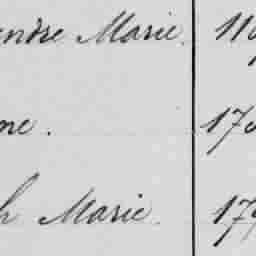 endre Marie. 119
ne. 170
h Marie. 179